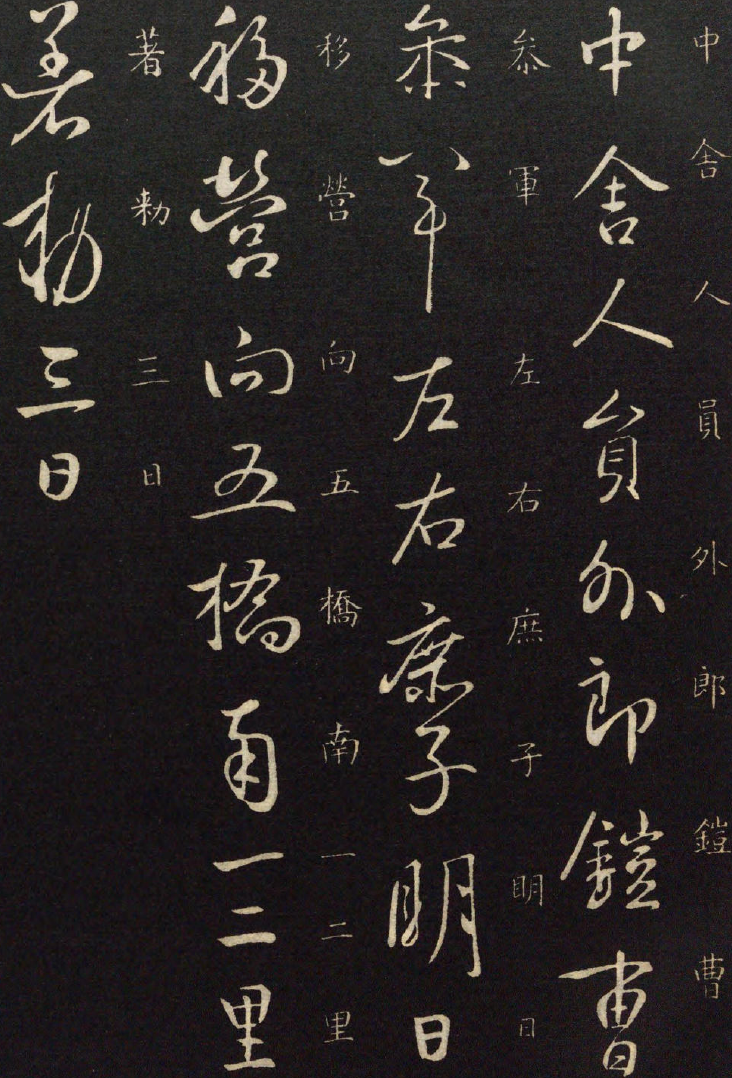 中舍人員外郎鎧曹
中舍人員外郎鎧曹
叅軍左右庶子明日
叅軍左右庶子明日
移營向五橋南一二里
移營向五橋南一二里
著勑三日
著勑三日